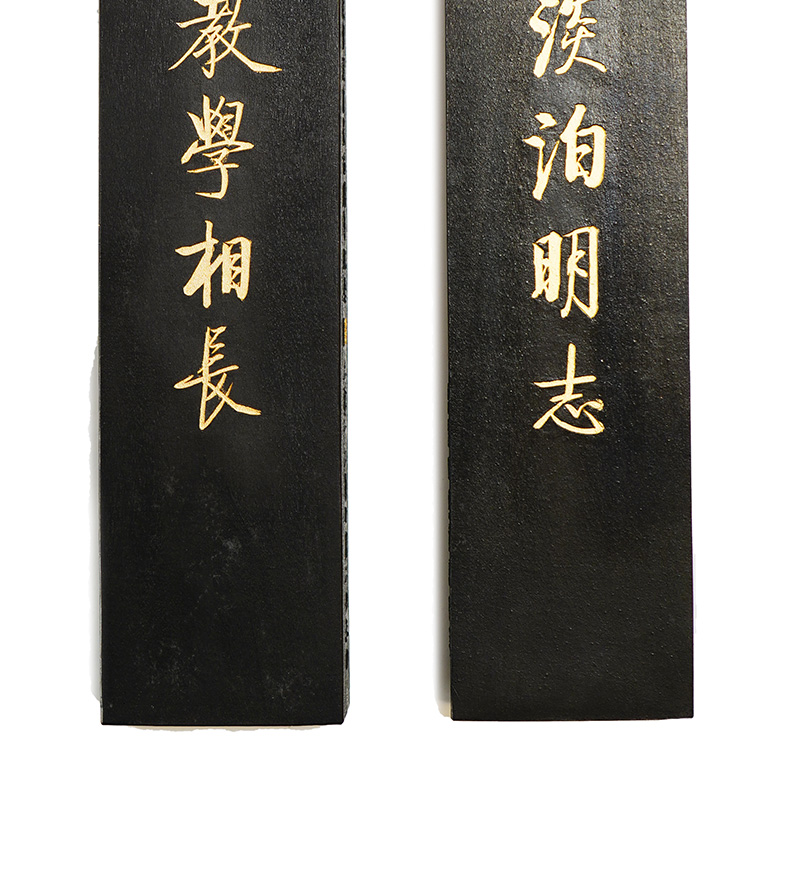 淡泊明志
教學相長